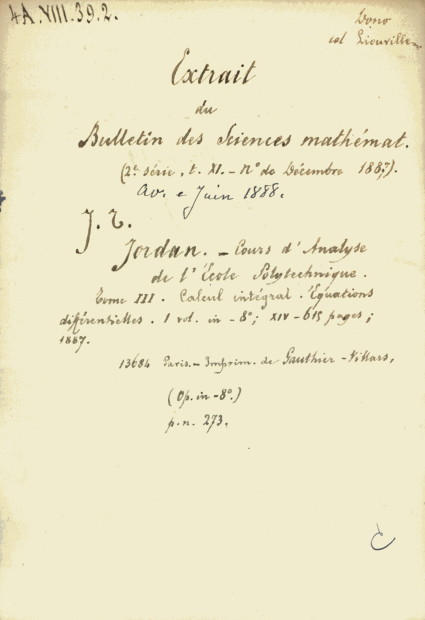 4A.VIII.39.2.
Dono
Liouville
Extrait
du
Bulletin des Sciences mathémat.
(2e série, t. XI. - No de Décembre 1887).
Av. e Juin 1888.
J. T.
Jordan. - Cours d'Analyse
de l'École Polytechnique.
Tome III. Calcul intégral. Équations
différentielles. 1 vol. in-8°; XIV-615 pages;
1887.
13684 Paris. - Imprim. de Gauthier-Villars,
(Op. in-8°.)
p.n. 273.
C